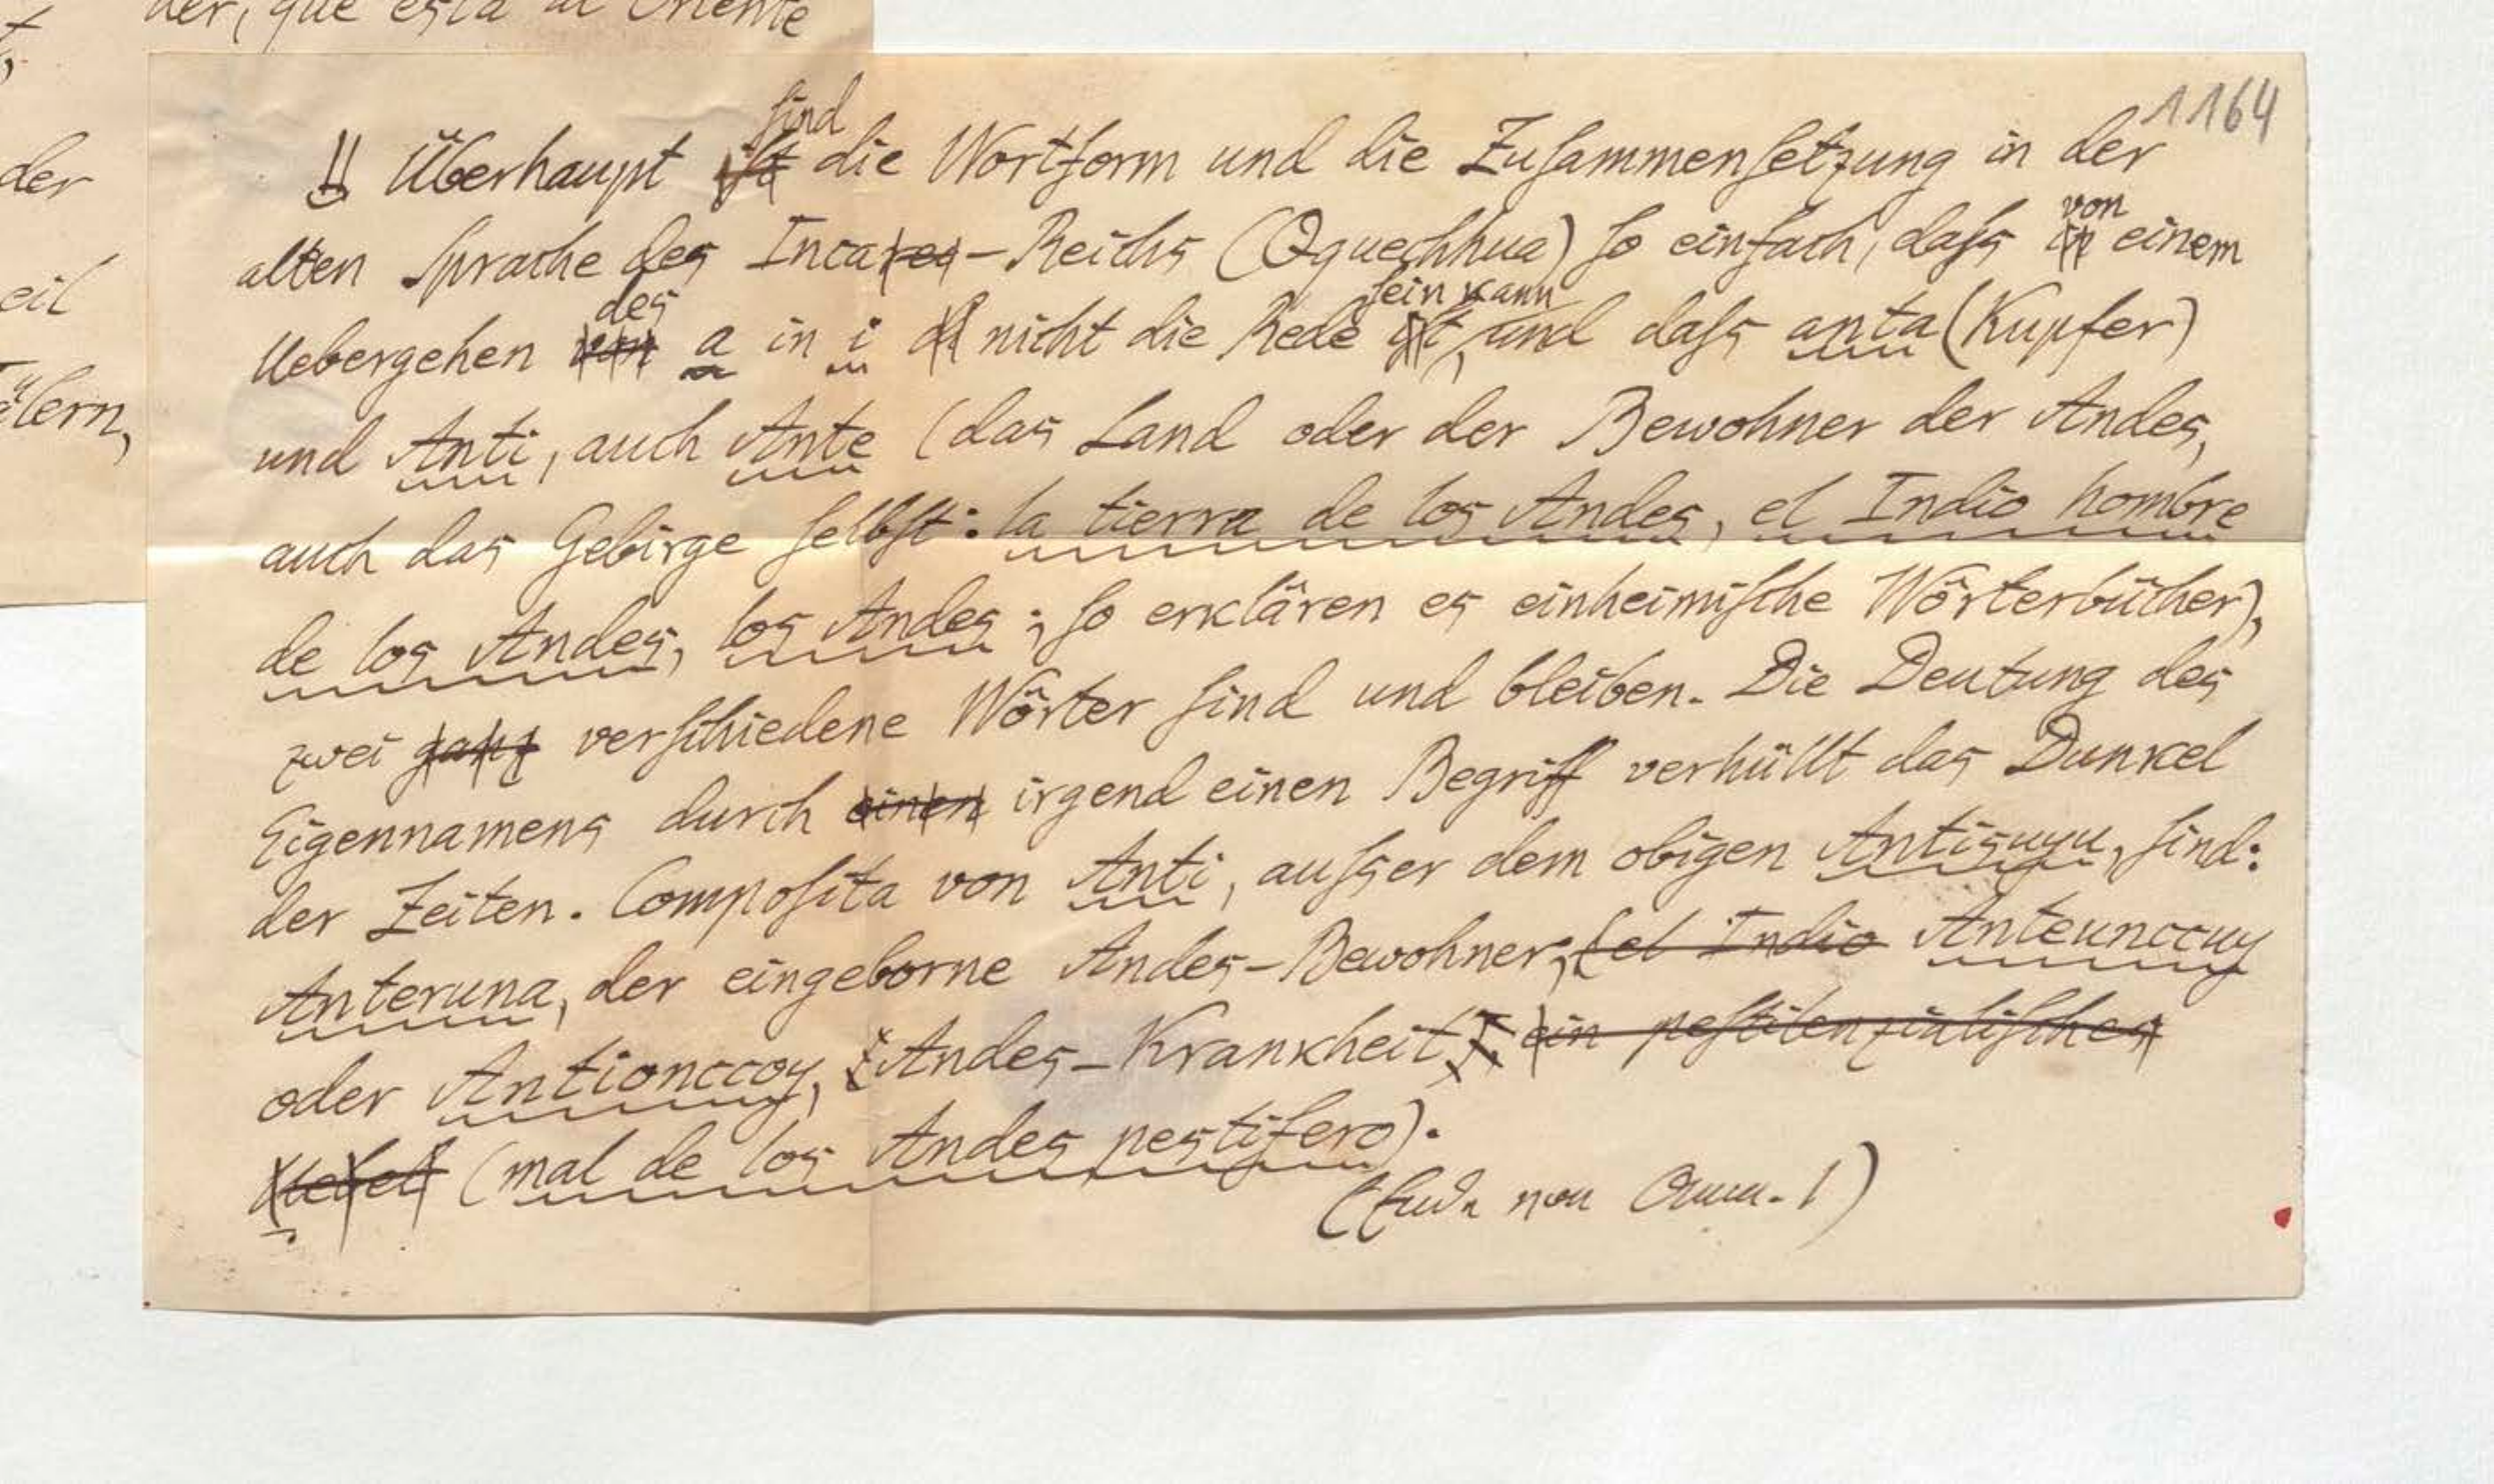 der, que está al Oriente
der
eil
älern,
1164
!! Überhaupt ist sind die Wortform und die Zusammensetzung in der
alten Sprache des Incares-Reichs (Qquechhua) so einfach, dass in von einem
Uebergehen von des a in i nicht die Rede ist, sein kann und dass anta (Kupfer)
und Anti, auch Ante (das Land oder der Bewohner der Andes,
auch das Gebirge selbst: la tierra de los Andes, el Indio hombre
de los Andes, los Andes; so erklären es einheimische Wörterbücher),
zwei ganz verschiedene Wörter sind und bleiben. Die Deutung des
Eigennamens durch einen irgend einen Begriff verhüllt das Dunkel
der Zeiten. Composita von Anti, ausser dem obigen Antisuyu, sind:
Anteruna, der eingeborne Andes-Bewohner; (el Indio Anteunccuy
oder Antionccoy, Andes-Krankheit, ein pestilenzialisches
Uebel (mal de los Andes pestifero).
(Ende von Anm. 1)